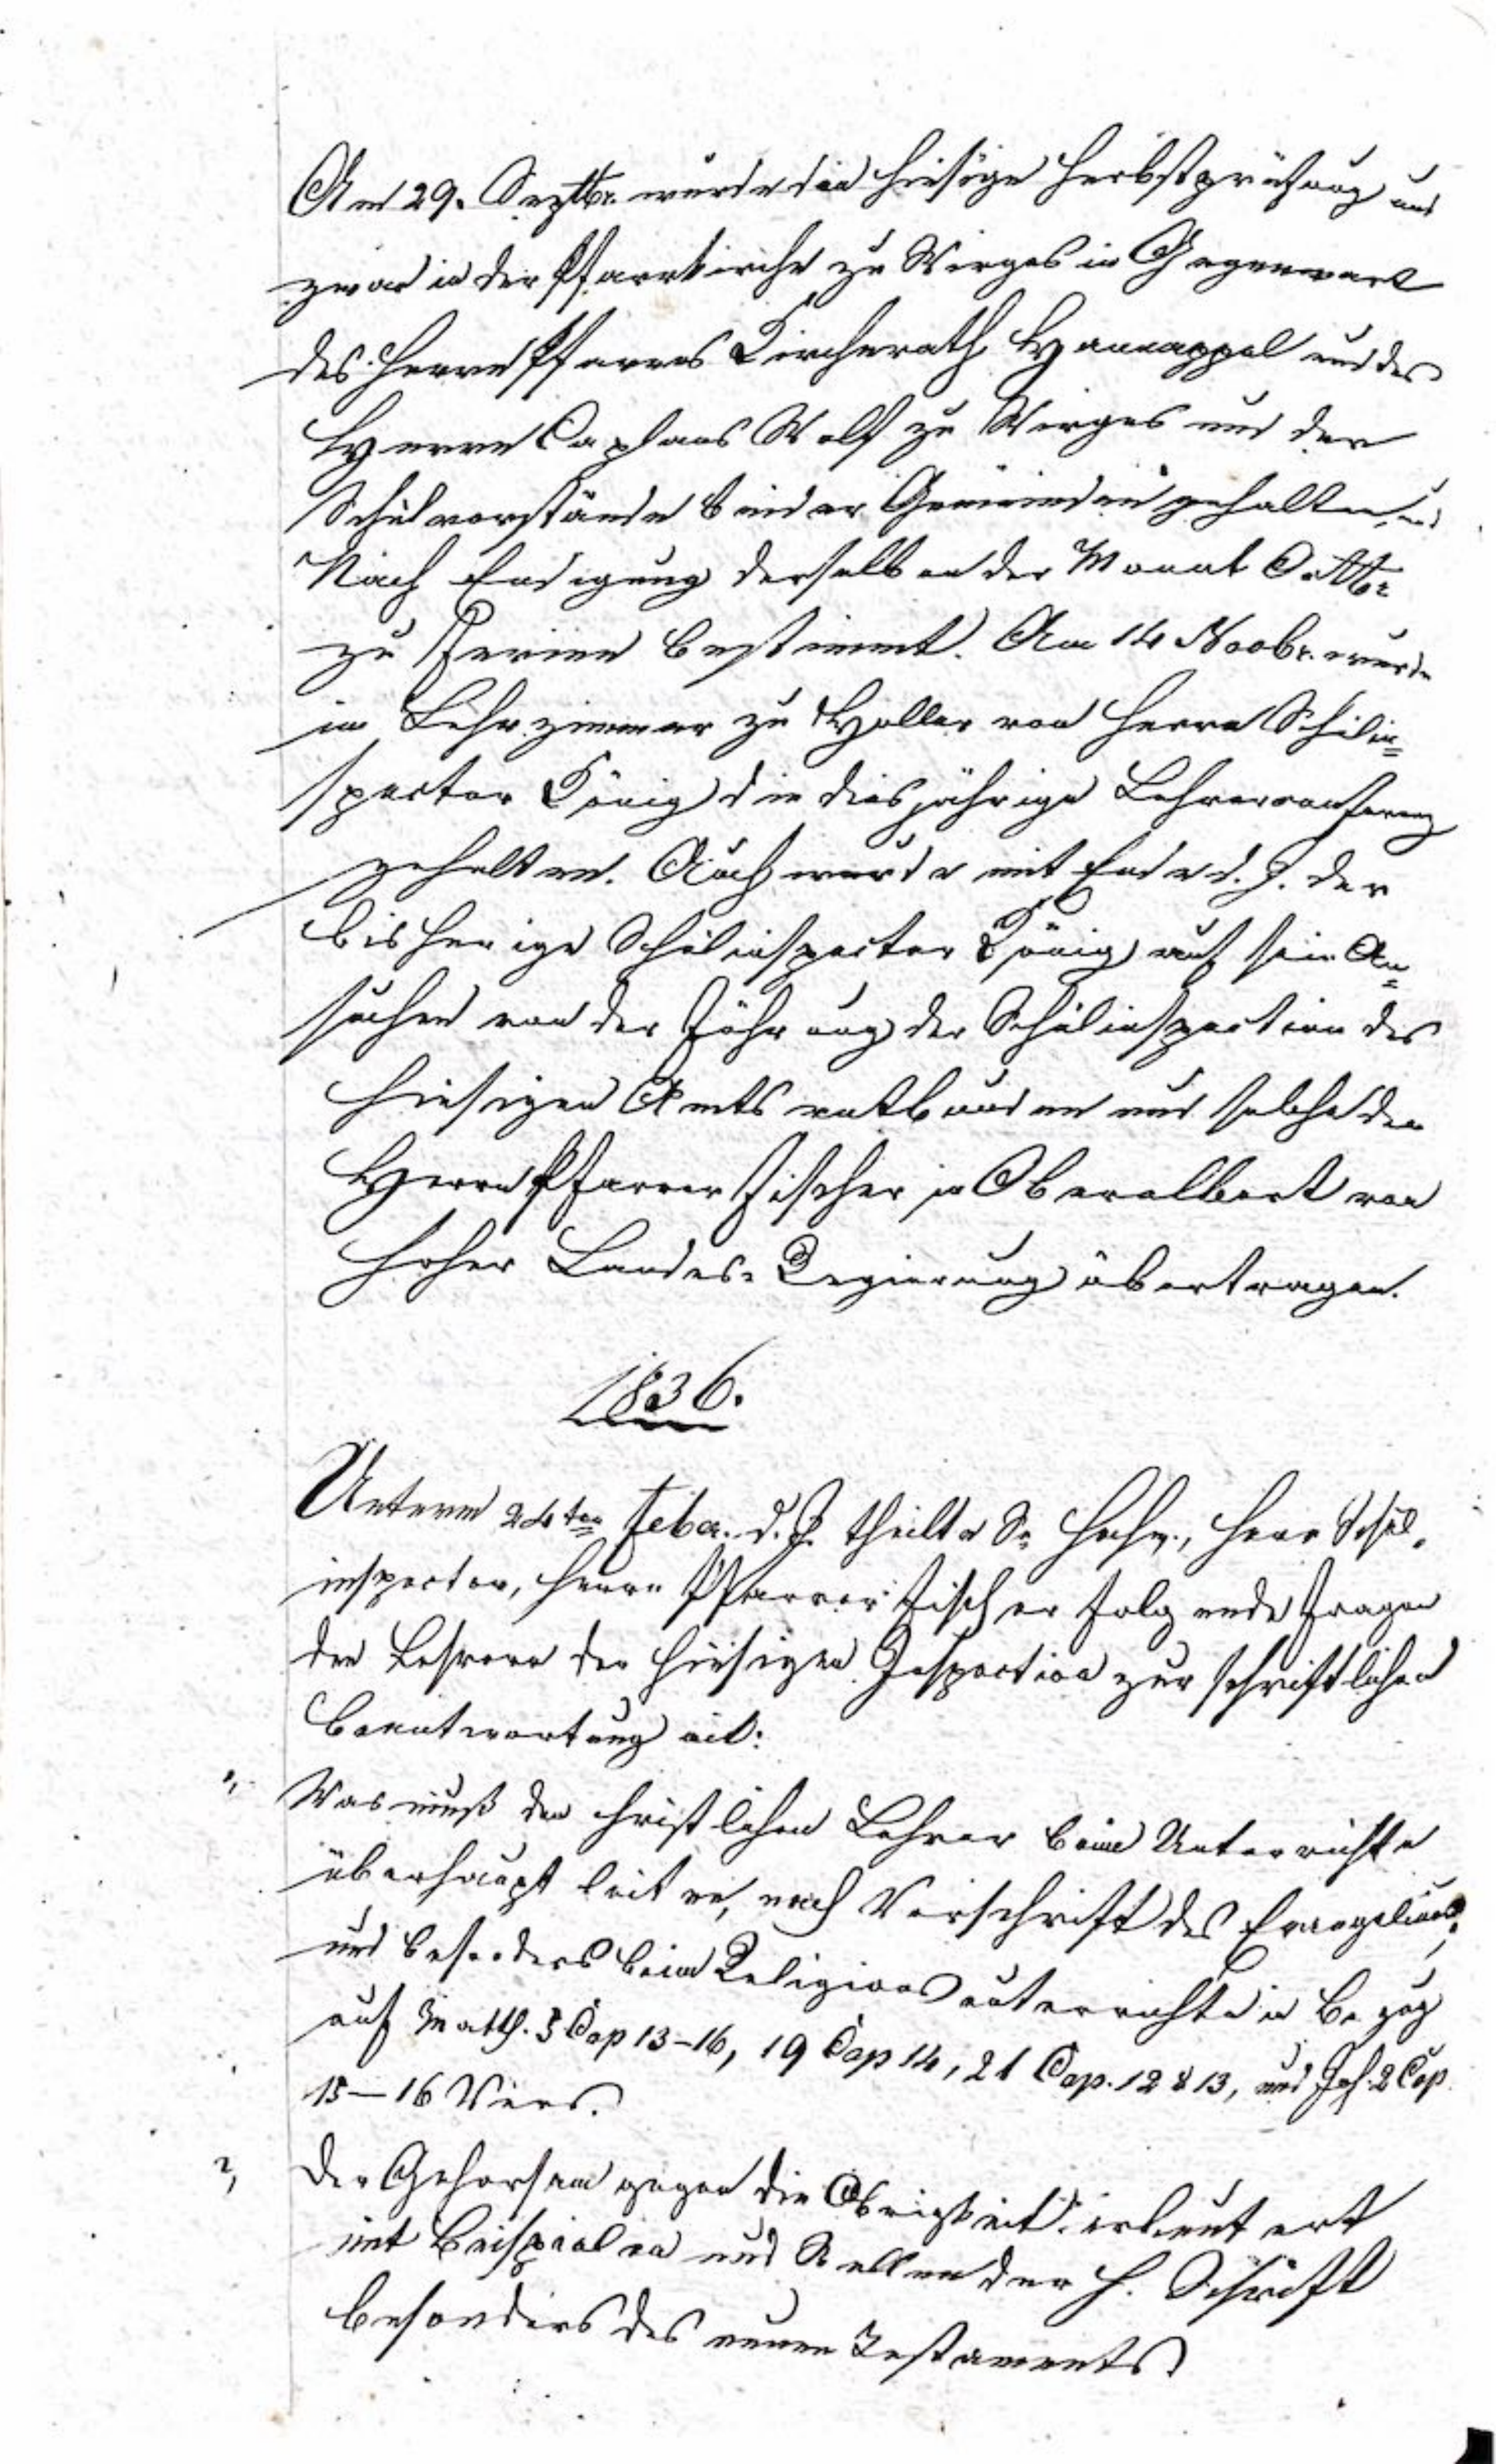 Am 29. Septbr. wurde die hiesige Herbstprüfung und
zwar in der Pfarrkirche zu Wirges in Gegenwart
des Herrn Pfarrers Kirchenrath Hannappel und des
Herrn Caplans Wolf zu Wirges und der
Schulvorstände beider Gemeinden gehalten, und
Nach Endigung derselben der Monat Octbr
zu Ferien bestimmt. Am 14 Novbr. wurde
im Lehrzimmer zu Holler von Herrn Schulin=
spector König die diesjährige Lehrerconferenz
gehalten. Auch wurde mit Ende d. J. der
bisherige Schulinspector König auf sein An=
suchen von der Führung der Schulinspection des
hiesigen Amts entbunden und solche dem
Herrn Pfarrer Fischer in Oberelbert von
hoher Landes-Regierung übertragen.
1836.
Unterm 24ten Febr. d. J. theilte Se Hochw., Herr Schul-
inspector, Herrn Pfarrer Fischer folgende Fragen
den Lehrern der hiesigen Inspection zur schriftlichen
Beantwortung mit:
1, Was muß den christlichen Lehrer beim Unterrichte
überhaupt leiten, nach Vorschrift des Evangeliums,
und besonders beim Religionsunterrichte in Bezug
auf Matth. 5 Cap 13–16, 19 Cap 14, 21 Cap. 12 & 13, und Joh. 2 Cap
15–16 Vers.
2, Der Gehorsam gegen die Obrigkeit erläutert
mit Beispielen und Stellen der h. Schrift
besonders des neuen Testaments